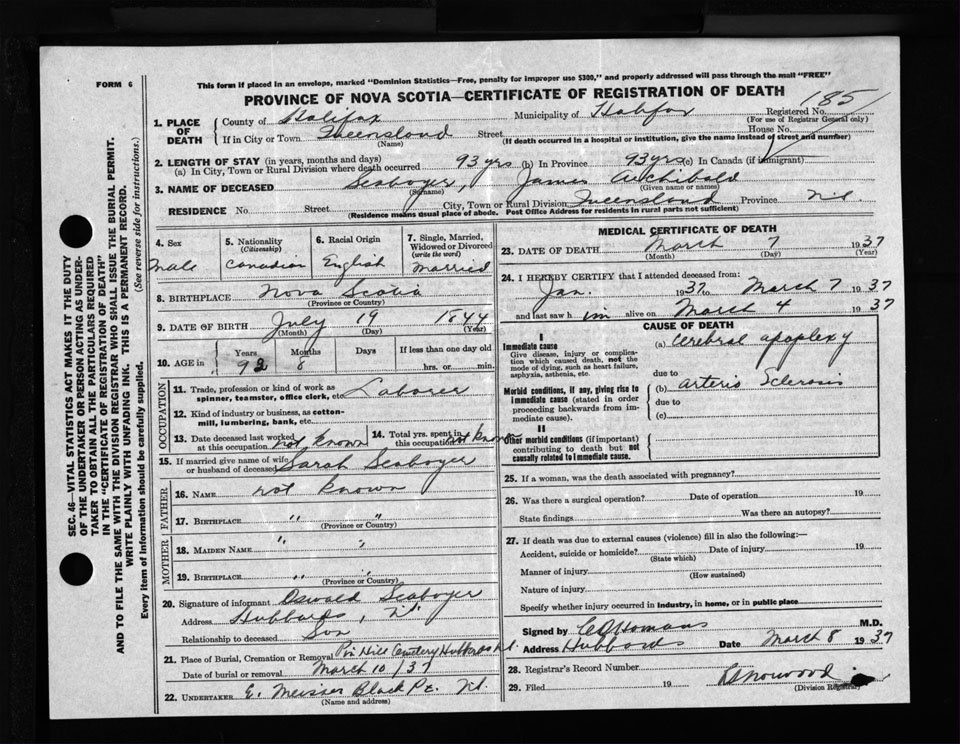 FORM 6
This form if placed in an envelope, marked "Dominion Statistics—Free, penalty for improper use $300," and properly addressed will pass through the mail "FREE"
PROVINCE OF NOVA SCOTIA—CERTIFICATE OF REGISTRATION OF DEATH
185
1. PLACE OF DEATH County of Halifax Municipality of Halifax Registered No. (For use of Registrar General only)
If in City or Town Queensland (Name) Street House No.
(If death occurred in a hospital or institution, give the name instead of street and number)
2. LENGTH OF STAY (in years, months and days)
(a) In City, Town or Rural Division where death occurred 93 yrs (b) In Province 93 yrs (c) In Canada (if immigrant)
3. NAME OF DECEASED Seaboyer, James Archibald
(Surname) (Given name or names)
RESIDENCE No. Street City, Town or Rural Division Queensland Province N.S.
(Residence means usual place of abode. Post Office Address for residents in rural parts not sufficient)
4. Sex Male
5. Nationality (Citizenship) Canadian
6. Racial Origin English
7. Single, Married, Widowed or Divorced (write the word) Married
8. BIRTHPLACE Nova Scotia
(Province or Country)
9. DATE OF BIRTH July 19 1844
(Month) (Day) (Year)
10. AGE in Years Months Days If less than one day old
92 8 hrs. or min.
OCCUPATION
11. Trade, profession or kind of work as spinner, teamster, office clerk, etc. Laborer
12. Kind of industry or business, as cotton-mill, lumbering, bank, etc.
13. Date deceased last worked at this occupation not known
14. Total yrs. spent in this occupation not known
15. If married give name of wife or husband of deceased Sarah Seaboyer
FATHER
16. NAME not known
17. BIRTHPLACE " "
(Province or Country)
MOTHER
18. MAIDEN NAME " "
19. BIRTHPLACE " "
(Province or Country)
20. Signature of informant Oswald Seaboyer
Address Hubbards, N.S.
Relationship to deceased Son
21. Place of Burial, Cremation or Removal Hill Cemetery Hubbards N.S.
Date of burial or removal March 10/37
22. UNDERTAKER E. Meisner Black Pt. N.S.
(Name and address)
MEDICAL CERTIFICATE OF DEATH
23. DATE OF DEATH March 7 1937
(Month) (Day) (Year)
24. I HEREBY CERTIFY that I attended deceased from:
Jan. 1937 to March 7 1937
and last saw h im alive on March 4 1937
CAUSE OF DEATH
I
Immediate cause
Give disease, injury or complication which caused death, not the mode of dying, such as heart failure, asphyxia, asthenia, etc.
(a) Cerebral apoplexy
due to
Morbid conditions, if any, giving rise to immediate cause (stated in order proceeding backwards from immediate cause).
(b) arterio Sclerosis
due to
(c)
II
Other morbid conditions (if important) contributing to death but not causally related to immediate cause.
25. If a woman, was the death associated with pregnancy?
26. Was there a surgical operation? Date of operation 19
State findings Was there an autopsy?
27. If death was due to external causes (violence) fill in also the following:—
Accident, suicide or homicide? Date of injury 19
(State which)
Manner of injury
(How sustained)
Nature of injury
Specify whether injury occurred in industry, in home, or in public place
Signed by Homans M.D.
Address Hubbards Date March 8 1937
28. Registrar's Record Number
29. Filed 19 Norwood
(Division Registrar)
SEC. 46—VITAL STATISTICS ACT MAKES IT THE DUTY
OF THE UNDERTAKER OR PERSON ACTING AS UNDER-
TAKER TO OBTAIN ALL THE PARTICULARS REQUIRED
IN THE "CERTIFICATE OF REGISTRATION OF DEATH"
AND TO FILE THE SAME WITH THE DIVISION REGISTRAR WHO SHALL ISSUE THE BURIAL PERMIT.
WRITE PLAINLY WITH UNFADING INK. THIS IS A PERMANENT RECORD.
Every item of information should be carefully supplied. (See reverse side for instructions.)